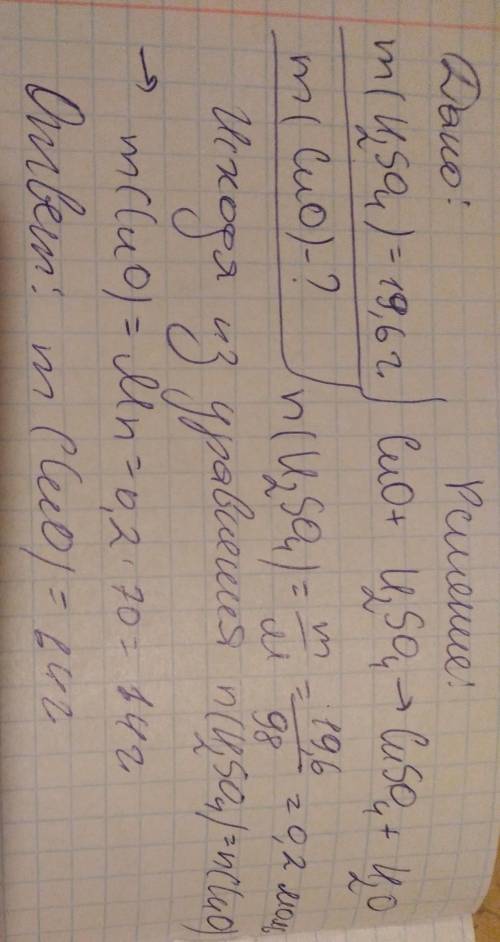 Дано: Решение:
m(H₂SO₄) = 19,6 г. CuO + H₂SO₄ → CuSO₄ + H₂O
m(CuO) - ? n(H₂SO₄) = m/M = 19,6/98 = 0,2 моль
Исходя из уравнения n(H₂SO₄) = n(CuO)
→ m(CuO) = Mn = 0,2 · 70 = 14 г
Ответ: m(CuO) = 14 г